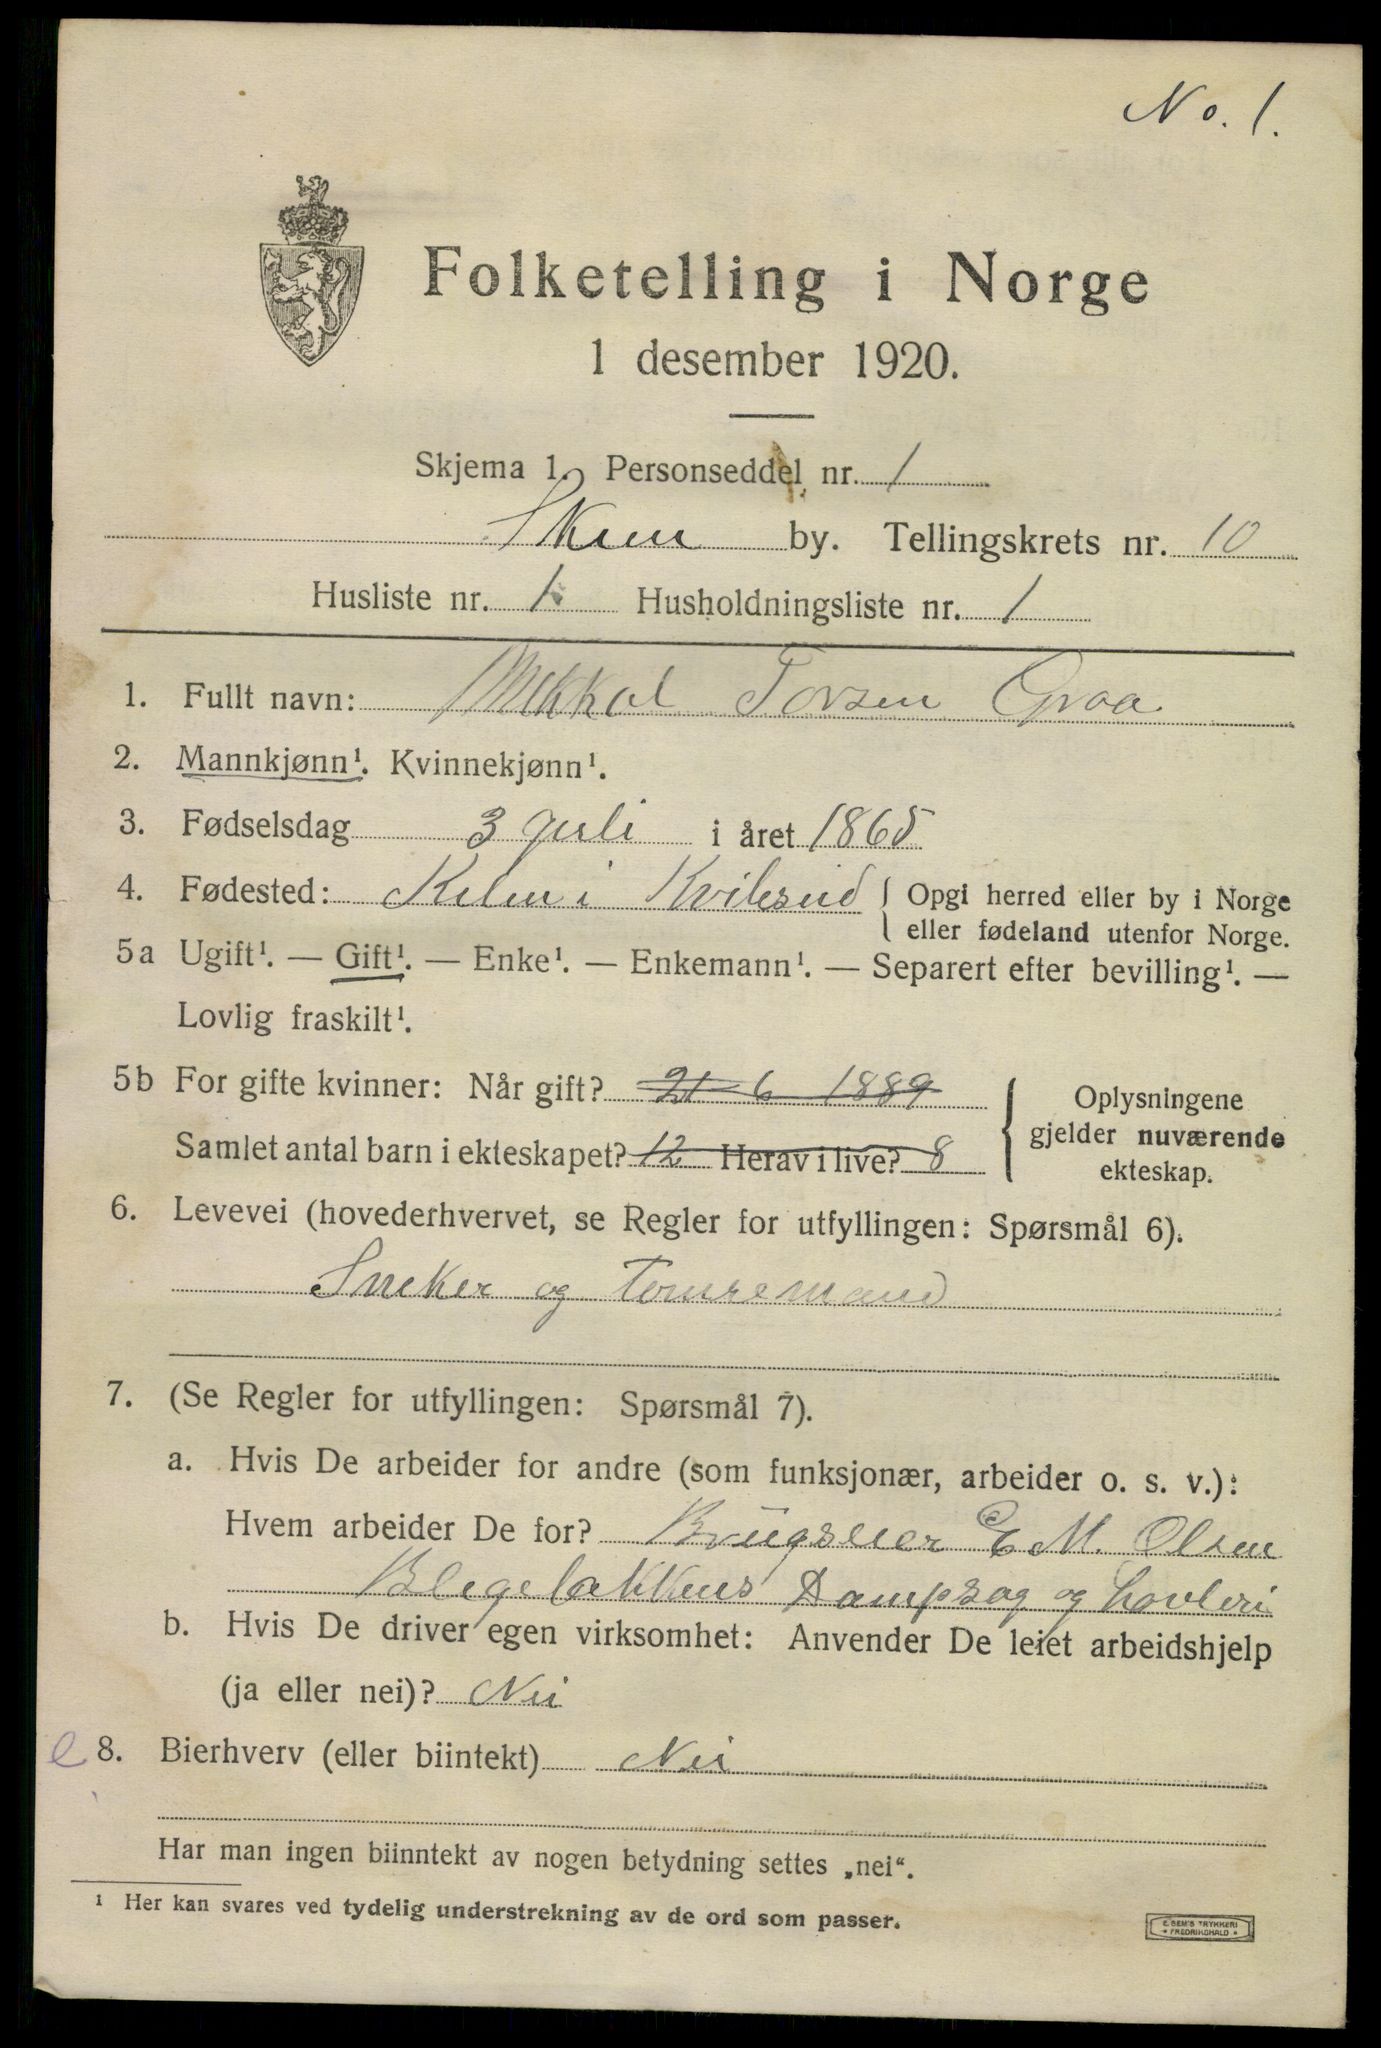 No. 1.
Folketelling i Norge
1 desember 1920.
Skjema 1. Personseddel nr. 1
Skien by. Tellingskrets nr. 10
Husliste nr. 1 Husholdningsliste nr. 1
1. Fullt navn: Mikkal Torsen Graa
2. Mannkjønn¹. Kvinnekjønn¹.
3. Fødselsdag 3 juli i året 1865
4. Fødested: Kilen i Kviteseid { Opgi herred eller by i Norge
eller fødeland utenfor Norge.
5a Ugift¹. — Gift¹. — Enke¹. — Enkemann¹. — Separert efter bevilling¹. —
Lovlig fraskilt¹.
5b For gifte kvinner: Når gift? 21 6 1889
Samlet antal barn i ekteskapet? 12 Herav i live? 8
{ Oplysningene
gjelder nuværende
ekteskap.
6. Levevei (hovederhvervet, se Regler for utfyllingen: Spørsmål 6).
Sneker og Tomremand
7. (Se Regler for utfyllingen: Spørsmål 7).
a. Hvis De arbeider for andre (som funksjonær, arbeider o. s. v.):
Hvem arbeider De for? Brugseier E M. Olsen
Blegebakkens Dampsag og hovleri
b. Hvis De driver egen virksomhet: Anvender De leiet arbeidshjelp
(ja eller nei)? Nei
e 8. Bierhverv (eller biintekt) Nei
Har man ingen biinntekt av nogen betydning settes „nei“.
¹ Her kan svares ved tydelig understrekning av de ord som passer.
E. SEM'S TRYKKERI
FREDRIKSHALD